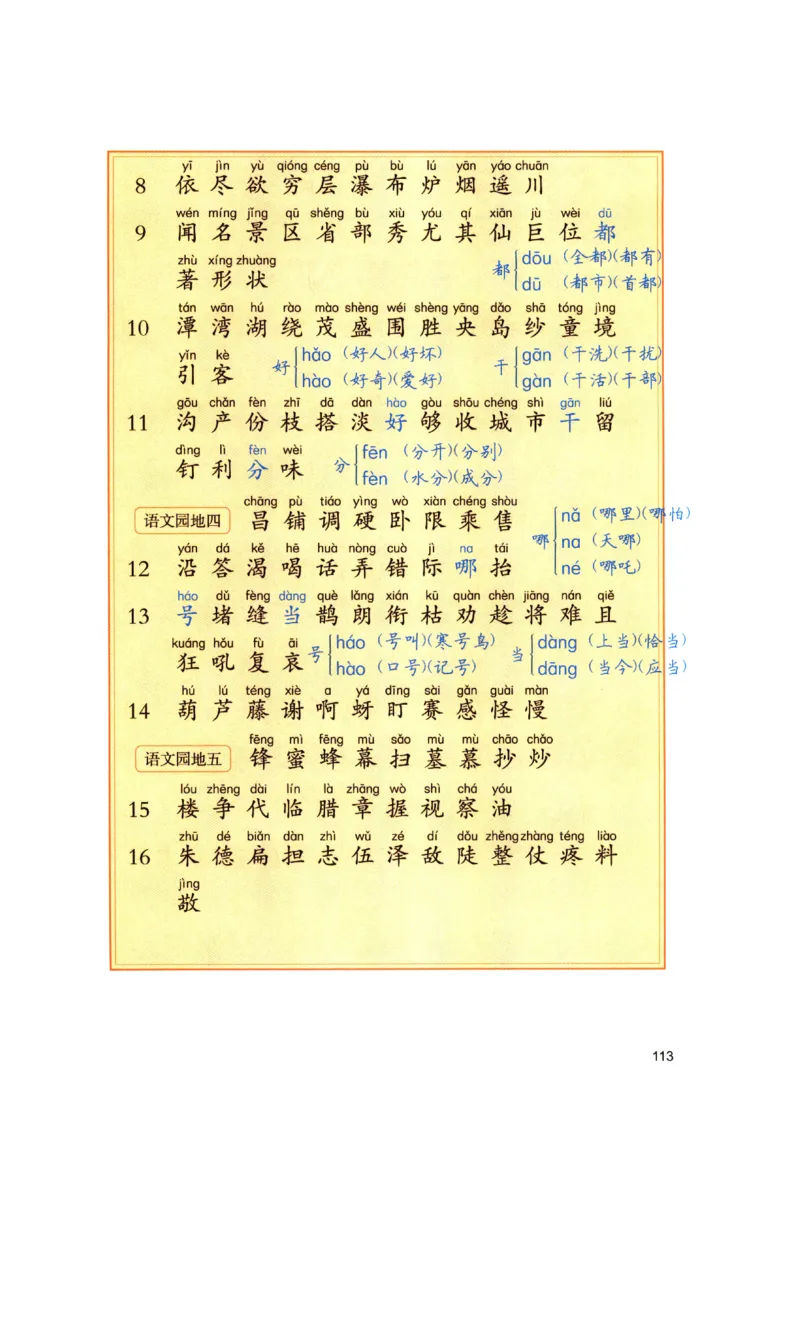 yī jìn yù qióng céng pù bù lú yān yáo chuān
8 依 尽 欲 穷 层 瀑 布 炉 烟 遥 川
wén míng jǐng qū shěng bù xiù yóu qí xiān jù wèi dū
9 闻 名 景 区 省 部 秀 尤 其 仙 巨 位 都
zhù xíng zhuàng
著 形 状
都 dōu (全都)(都有)
dū (都市)(首都)
tán wān hú rào mào shèng wéi shèng yāng dǎo shā tóng jìng
10 潭 湾 湖 绕 茂 盛 围 胜 央 岛 纱 童 境
yǐn kè
引 客
好 hǎo (好人)(好坏)
hào (好奇)(爱好)
干 gān (干洗)(干扰)
gàn (干活)(干部)
gōu chǎn fèn zhī dā dàn hào gòu shōu chéng shì gān liú
11 沟 产 份 枝 搭 淡 好 够 收 城 市 干 留
dìng lì fèn wèi
钉 利 分 味
分 fēn (分开)(分别)
fèn (水分)(成分)
chāng pù tiáo yìng wò xiàn chéng shòu
语文园地四 昌 铺 调 硬 卧 限 乘 售
哪 nǎ (哪里)(哪怕)
na (天哪)
né (哪吒)
yán dá kě hē huà nòng cuò jì na tái
12 沿 答 渴 喝 话 弄 错 际 哪 抬
háo dǔ fèng dàng què lǎng xián kū quàn chèn jiāng nán qiě
13 号 堵 缝 当 鹊 朗 衔 枯 劝 趁 将 难 且
kuáng hǒu fù āi
狂 吼 复 哀
号 háo (号叫)(寒号鸟)
hào (口号)(记号)
当 dàng (上当)(恰当)
dāng (当今)(应当)
hú lú téng xiè a yá dīng sài gǎn guài màn
14 葫 芦 藤 谢 啊 蚜 盯 赛 感 怪 慢
fēng mì fēng mù sǎo mù mù chāo chǎo
语文园地五 锋 蜜 蜂 幕 扫 墓 慕 抄 炒
lóu zhēng dài lín là zhāng wò shì chá yóu
15 楼 争 代 临 腊 章 握 视 察 油
zhū dé biǎn dàn zhì wǔ zé dí dǒu zhěng zhàng téng liào
16 朱 德 扁 担 志 伍 泽 敌 陡 整 仗 疼 料
jìng
敬
113